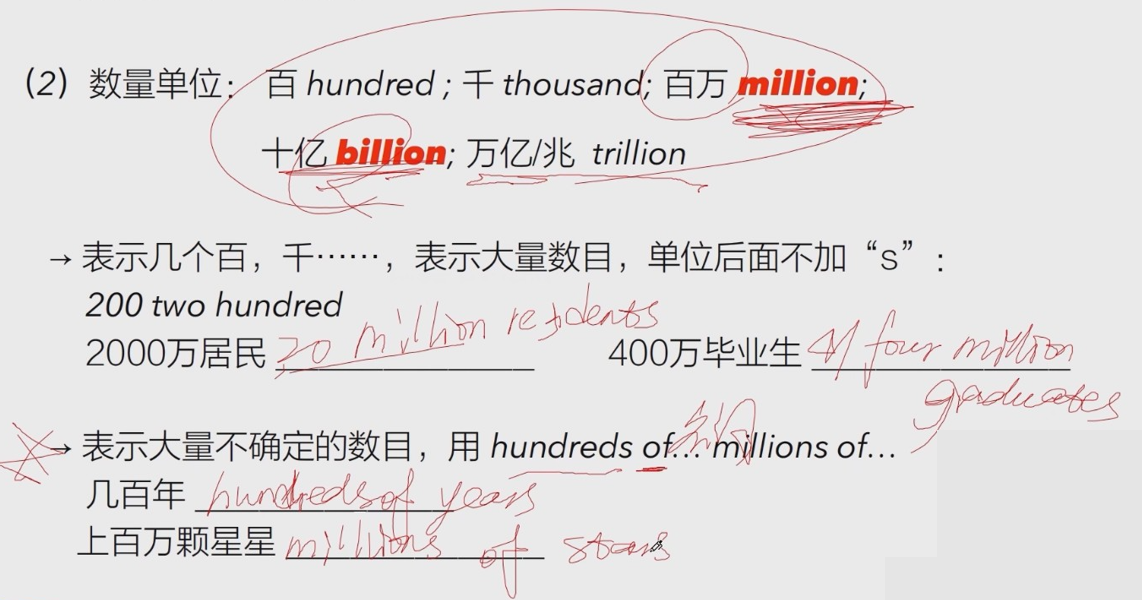 (2) 数量单位: 百 hundred ; 千 thousand; 百万 million;
十亿 billion; 万亿/兆 trillion
→ 表示几个百，千……，表示大量数目，单位后面不加“s”:
200 two hundred
2000万居民 20 million residents 400万毕业生 4/ four million
graduates
→ 表示大量不确定的数目，用 hundreds of… 名词 millions of…
几百年 hundreds of years
上百万颗星星 millions of stars